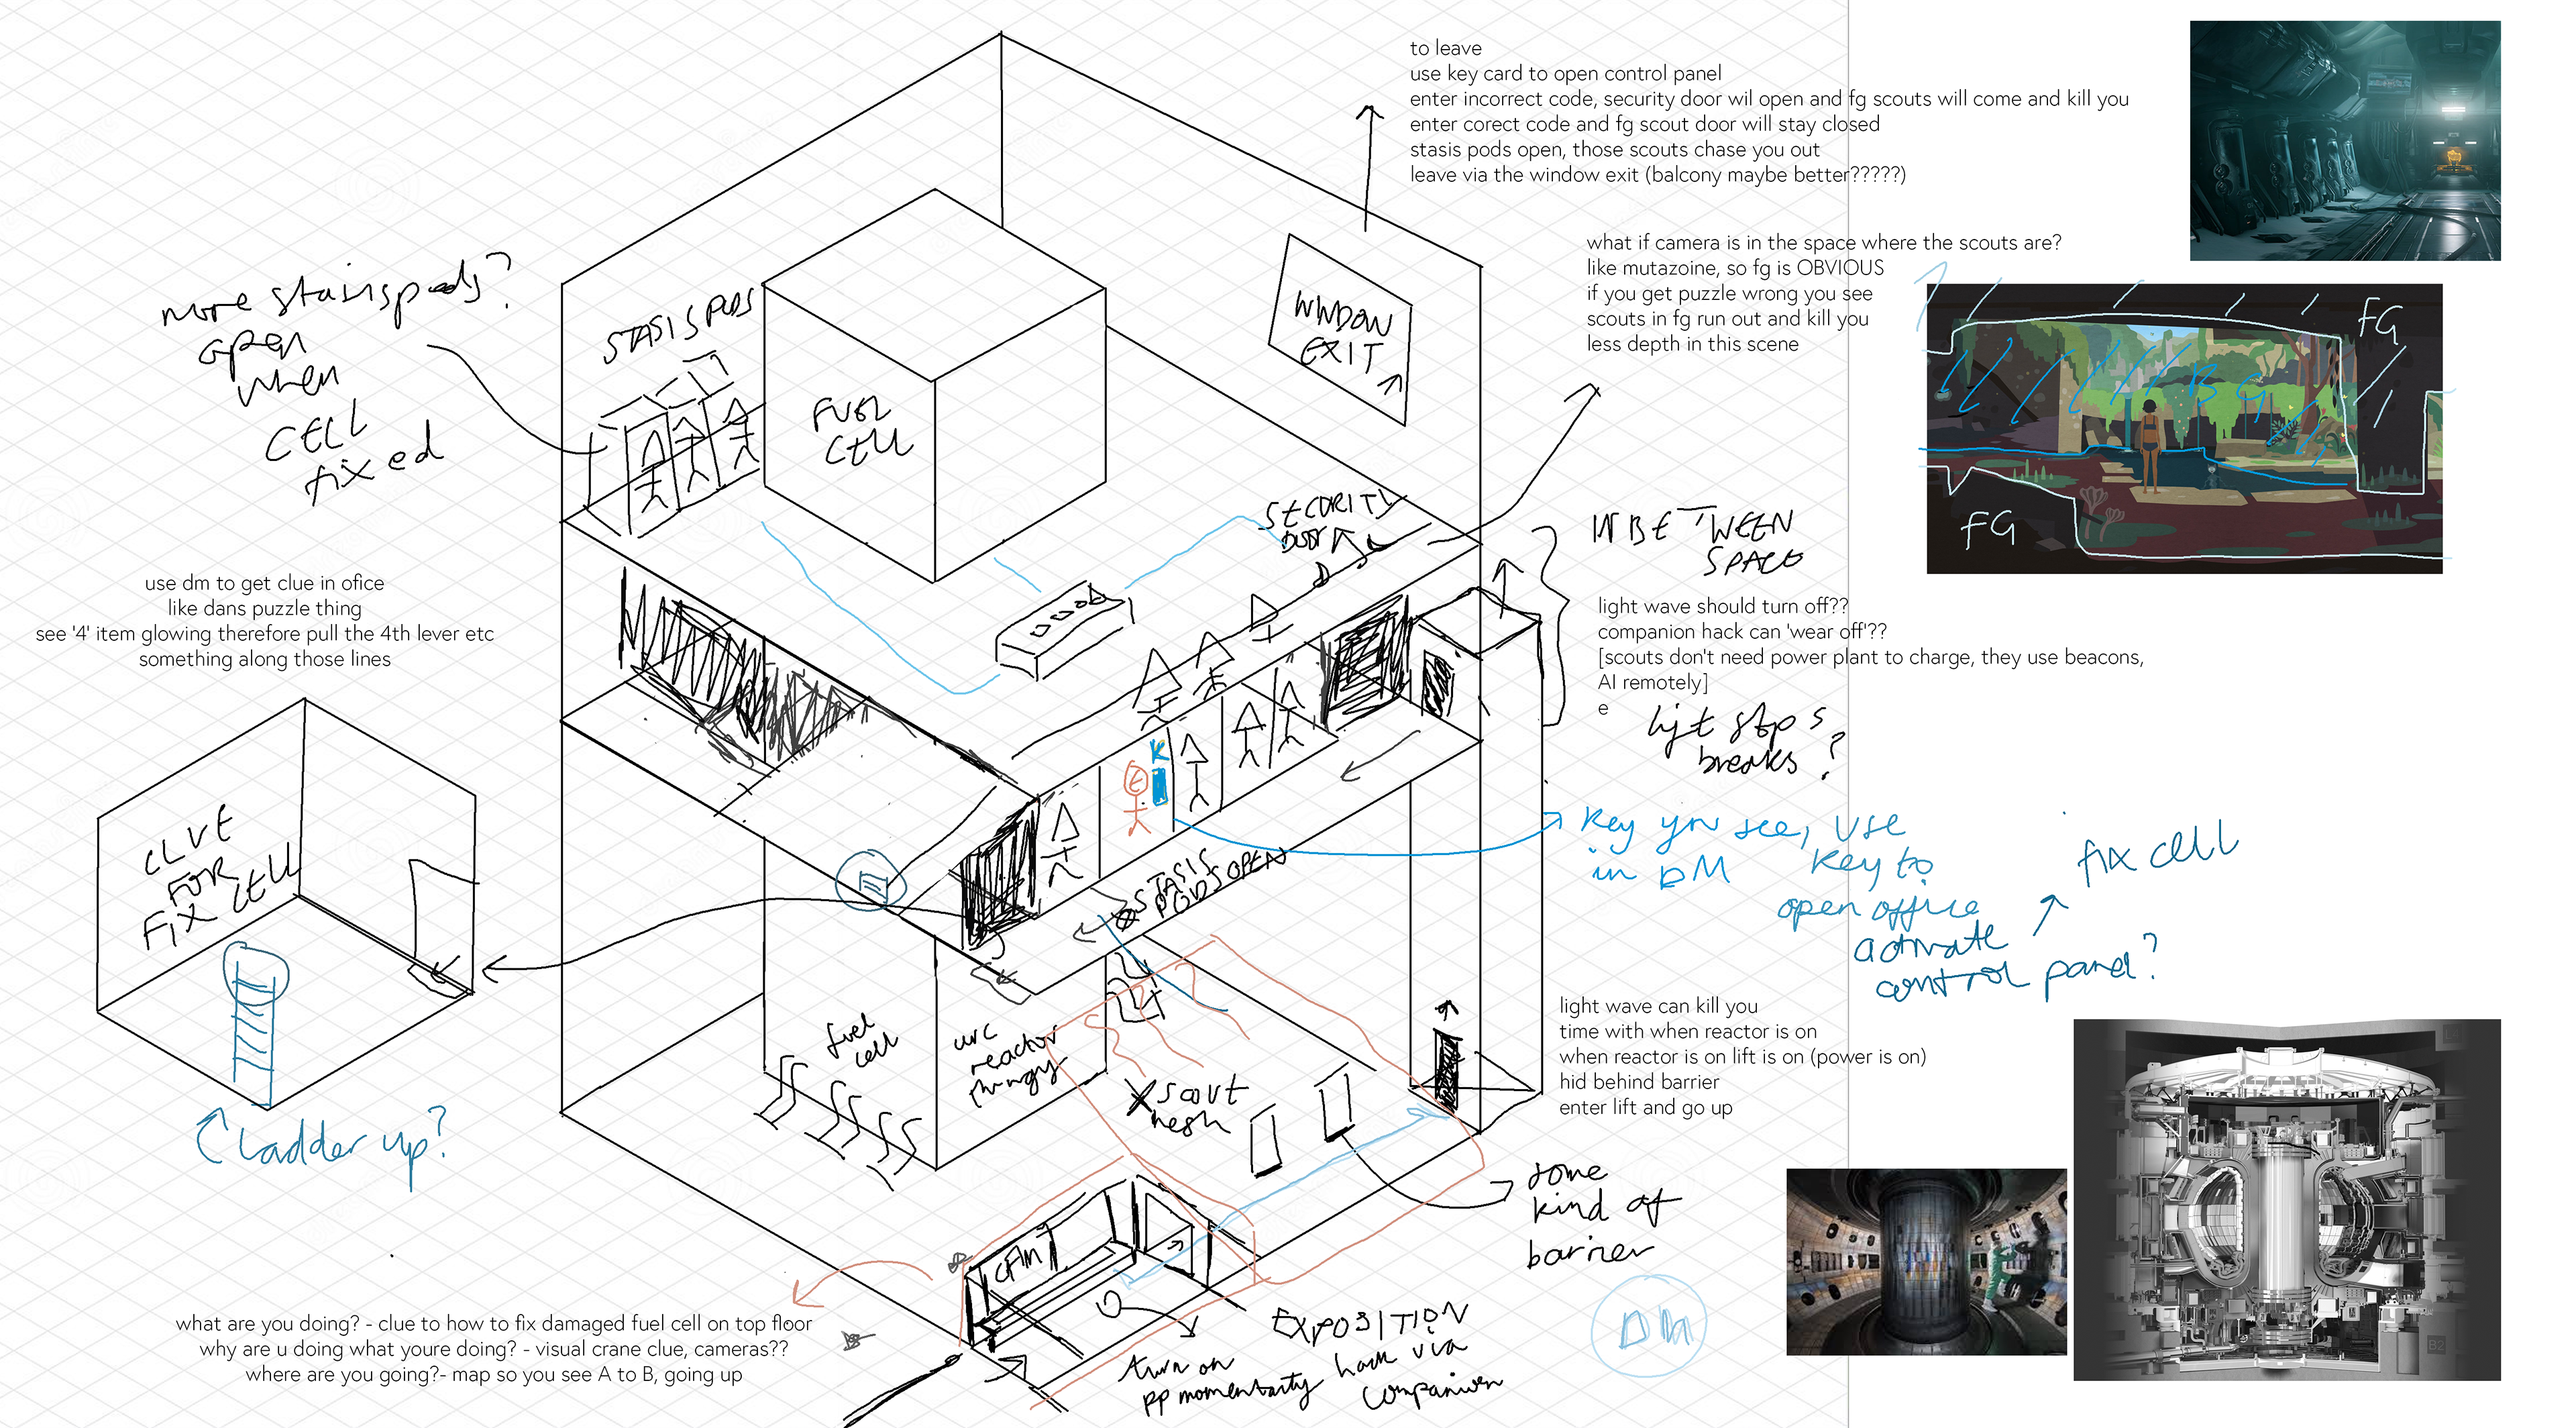 to leave
use key card to open control panel
enter incorrect code, security door wil open and fg scouts will come and kill you
enter corect code and fg scout door will stay closed
stasis pods open, those scouts chase you out
leave via the window exit (balcony maybe better?????)
what if camera is in the space where the scouts are?
like mutazoine, so fg is OBVIOUS
if you get puzzle wrong you see
scouts in fg run out and kill you
less depth in this scene
FG
BG
FG
more stasispods?
open
when
CELL
fixed
STASIS PODS
FUEL
CELL
WINDOW
EXIT
SECURITY
DOOR
IN BETWEEN
SPACE
use dm to get clue in ofice
like dans puzzle thing
see '4' item glowing therefore pull the 4th lever etc
something along those lines
light wave should turn off??
companion hack can 'wear off'??
[scouts don't need power plant to charge, they use beacons,
AI remotely]
e
lift stops
breaks?
K
Key you see, use
in DM
key to
open office
activate
control panel?
fix cell
CLUE
FOR
FIX CELL
Ladder up?
STASIS
PODS OPEN
fuel
cell
arc
reactor
thingy
scout
mesh
light wave can kill you
time with when reactor is on
when reactor is on lift is on (power is on)
hid behind barrier
enter lift and go up
some
kind of
barrier
DM
what are you doing? - clue to how to fix damaged fuel cell on top floor
why are u doing what youre doing? - visual crane clue, cameras??
where are you going?- map so you see A to B, going up
EXPOSITION
turn on
pp momentarity
hack via
companion
B2